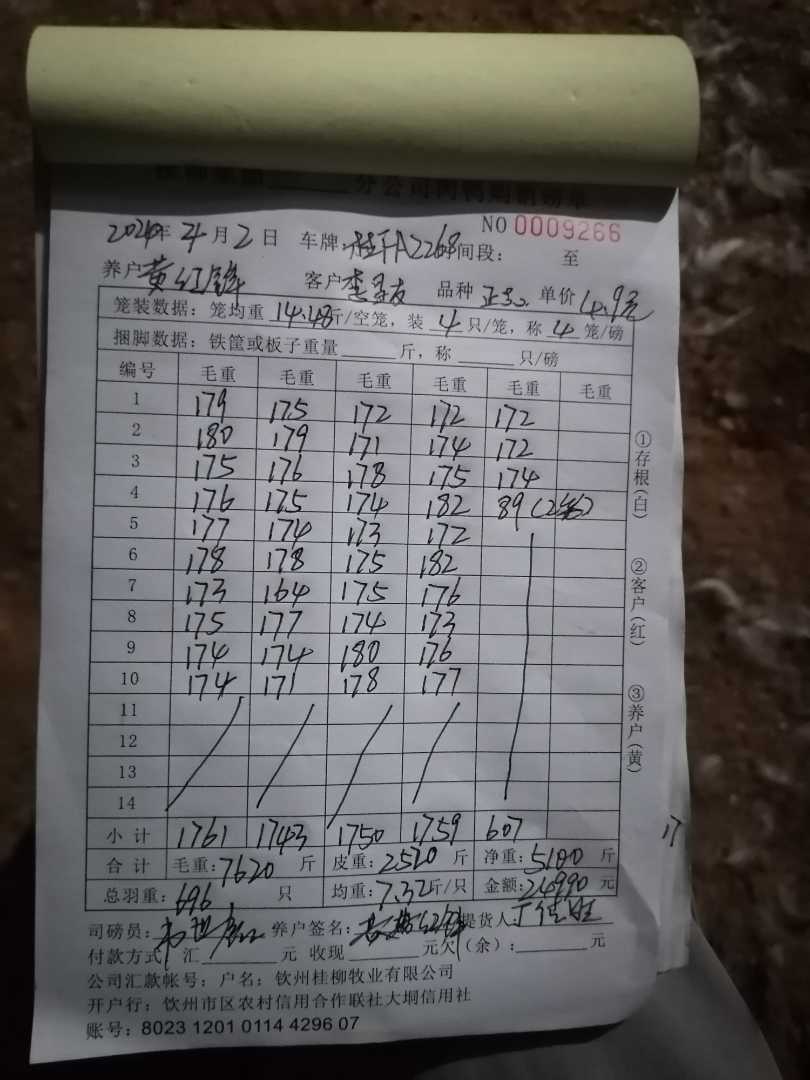 分公司肉鸭购销磅单
NO 0009266
2024年 4月 2日 车牌:桂FA2268 间段: 至
养户 黄红锋 客户 品种 单价 4.9元
笼装数据:笼均重 14.48斤/空笼,装 4 只/笼,称 4 笼/磅
捆脚数据:铁筐或板子重量 斤,称 只/磅
编号 毛重 毛重 毛重 毛重 毛重 毛重
1 179 175 172 172 172
2 180 179 171 174 172
3 175 176 178 175 174
4 176 175 174 182 89(2笼)
5 177 174 173 172
6 178 178 175 182
7 173 164 175 176
8 175 177 174 173
9 174 174 180 176
10 174 171 178 177
11
12
13
14
小计 1761 1743 1750 1759 607
合计 毛重:7620 斤 皮重:2520 斤 净重:5100 斤
总羽重:696 只 均重:7.32斤/只 金额:24990 元
司磅员: 养户签名: 提货人:
付款方式 汇 元 收现 元欠(余): 元
公司汇款帐号:户名:钦州桂柳牧业有限公司
开户行:钦州市区农村信用合作联社大垌信用社
账号:8023 1201 0114 4296 07
①存根(白)
②客户(红)
③养户(黄)
17